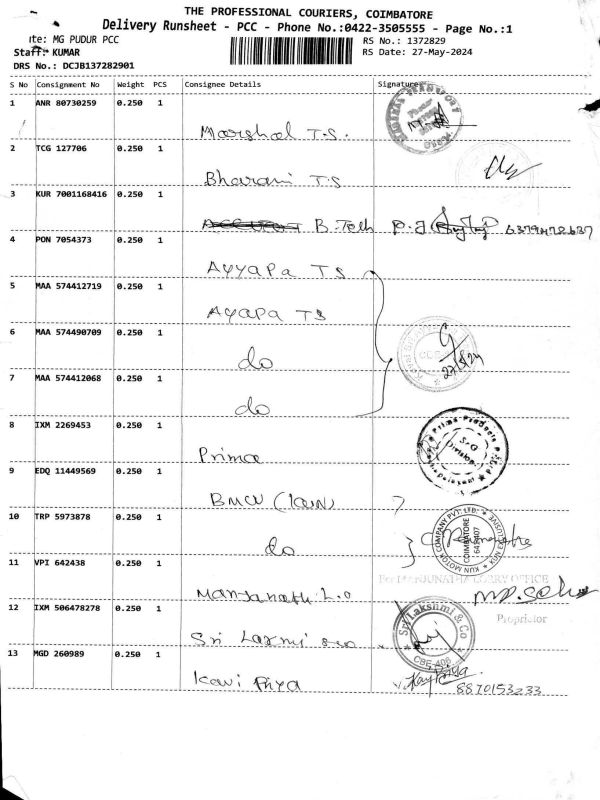 THE PROFESSIONAL COURIERS, COIMBATORE
Delivery Runsheet - PCC - Phone No.:0422-3505555 - Page No.:1
ite: MG PUDUR PCC
RS No.: 1372829
Staff: KUMAR
RS Date: 27-May-2024
DRS No.: DCJB137282901
S No Consignment No Weight PCS Consignee Details Signature
1 ANR 80730259 0.250 1
Marshal T.S.
2 TCG 127706 0.250 1
Bharani T.S
3 KUR 7001168416 0.250 1
B.Tech
4 PON 7054373 0.250 1
Ayyapa TS
5 MAA 574412719 0.250 1
Ayapa TS
6 MAA 574490709 0.250 1
do
27/5/24
7 MAA 574412068 0.250 1
do
8 IXM 2269453 0.250 1
Prima
Prima Products
S.G Division
9 EDQ 11449569 0.250 1
BMW (KUN)
10 TRP 5973878 0.250 1
do
KUN MOTOR COMPANY PVT. LTD.
KUN EXCLUSIVE
COIMBATORE
11 VPI 642438 0.250 1
For MANJUNATHA LORRY OFFICE
Manjanath L.O
Proprietor
12 IXM 506478278 0.250 1
Sri Laxmi
Sri Lakshmi & Co
13 MGD 260989 0.250 1
Kavi Priya
8870153233